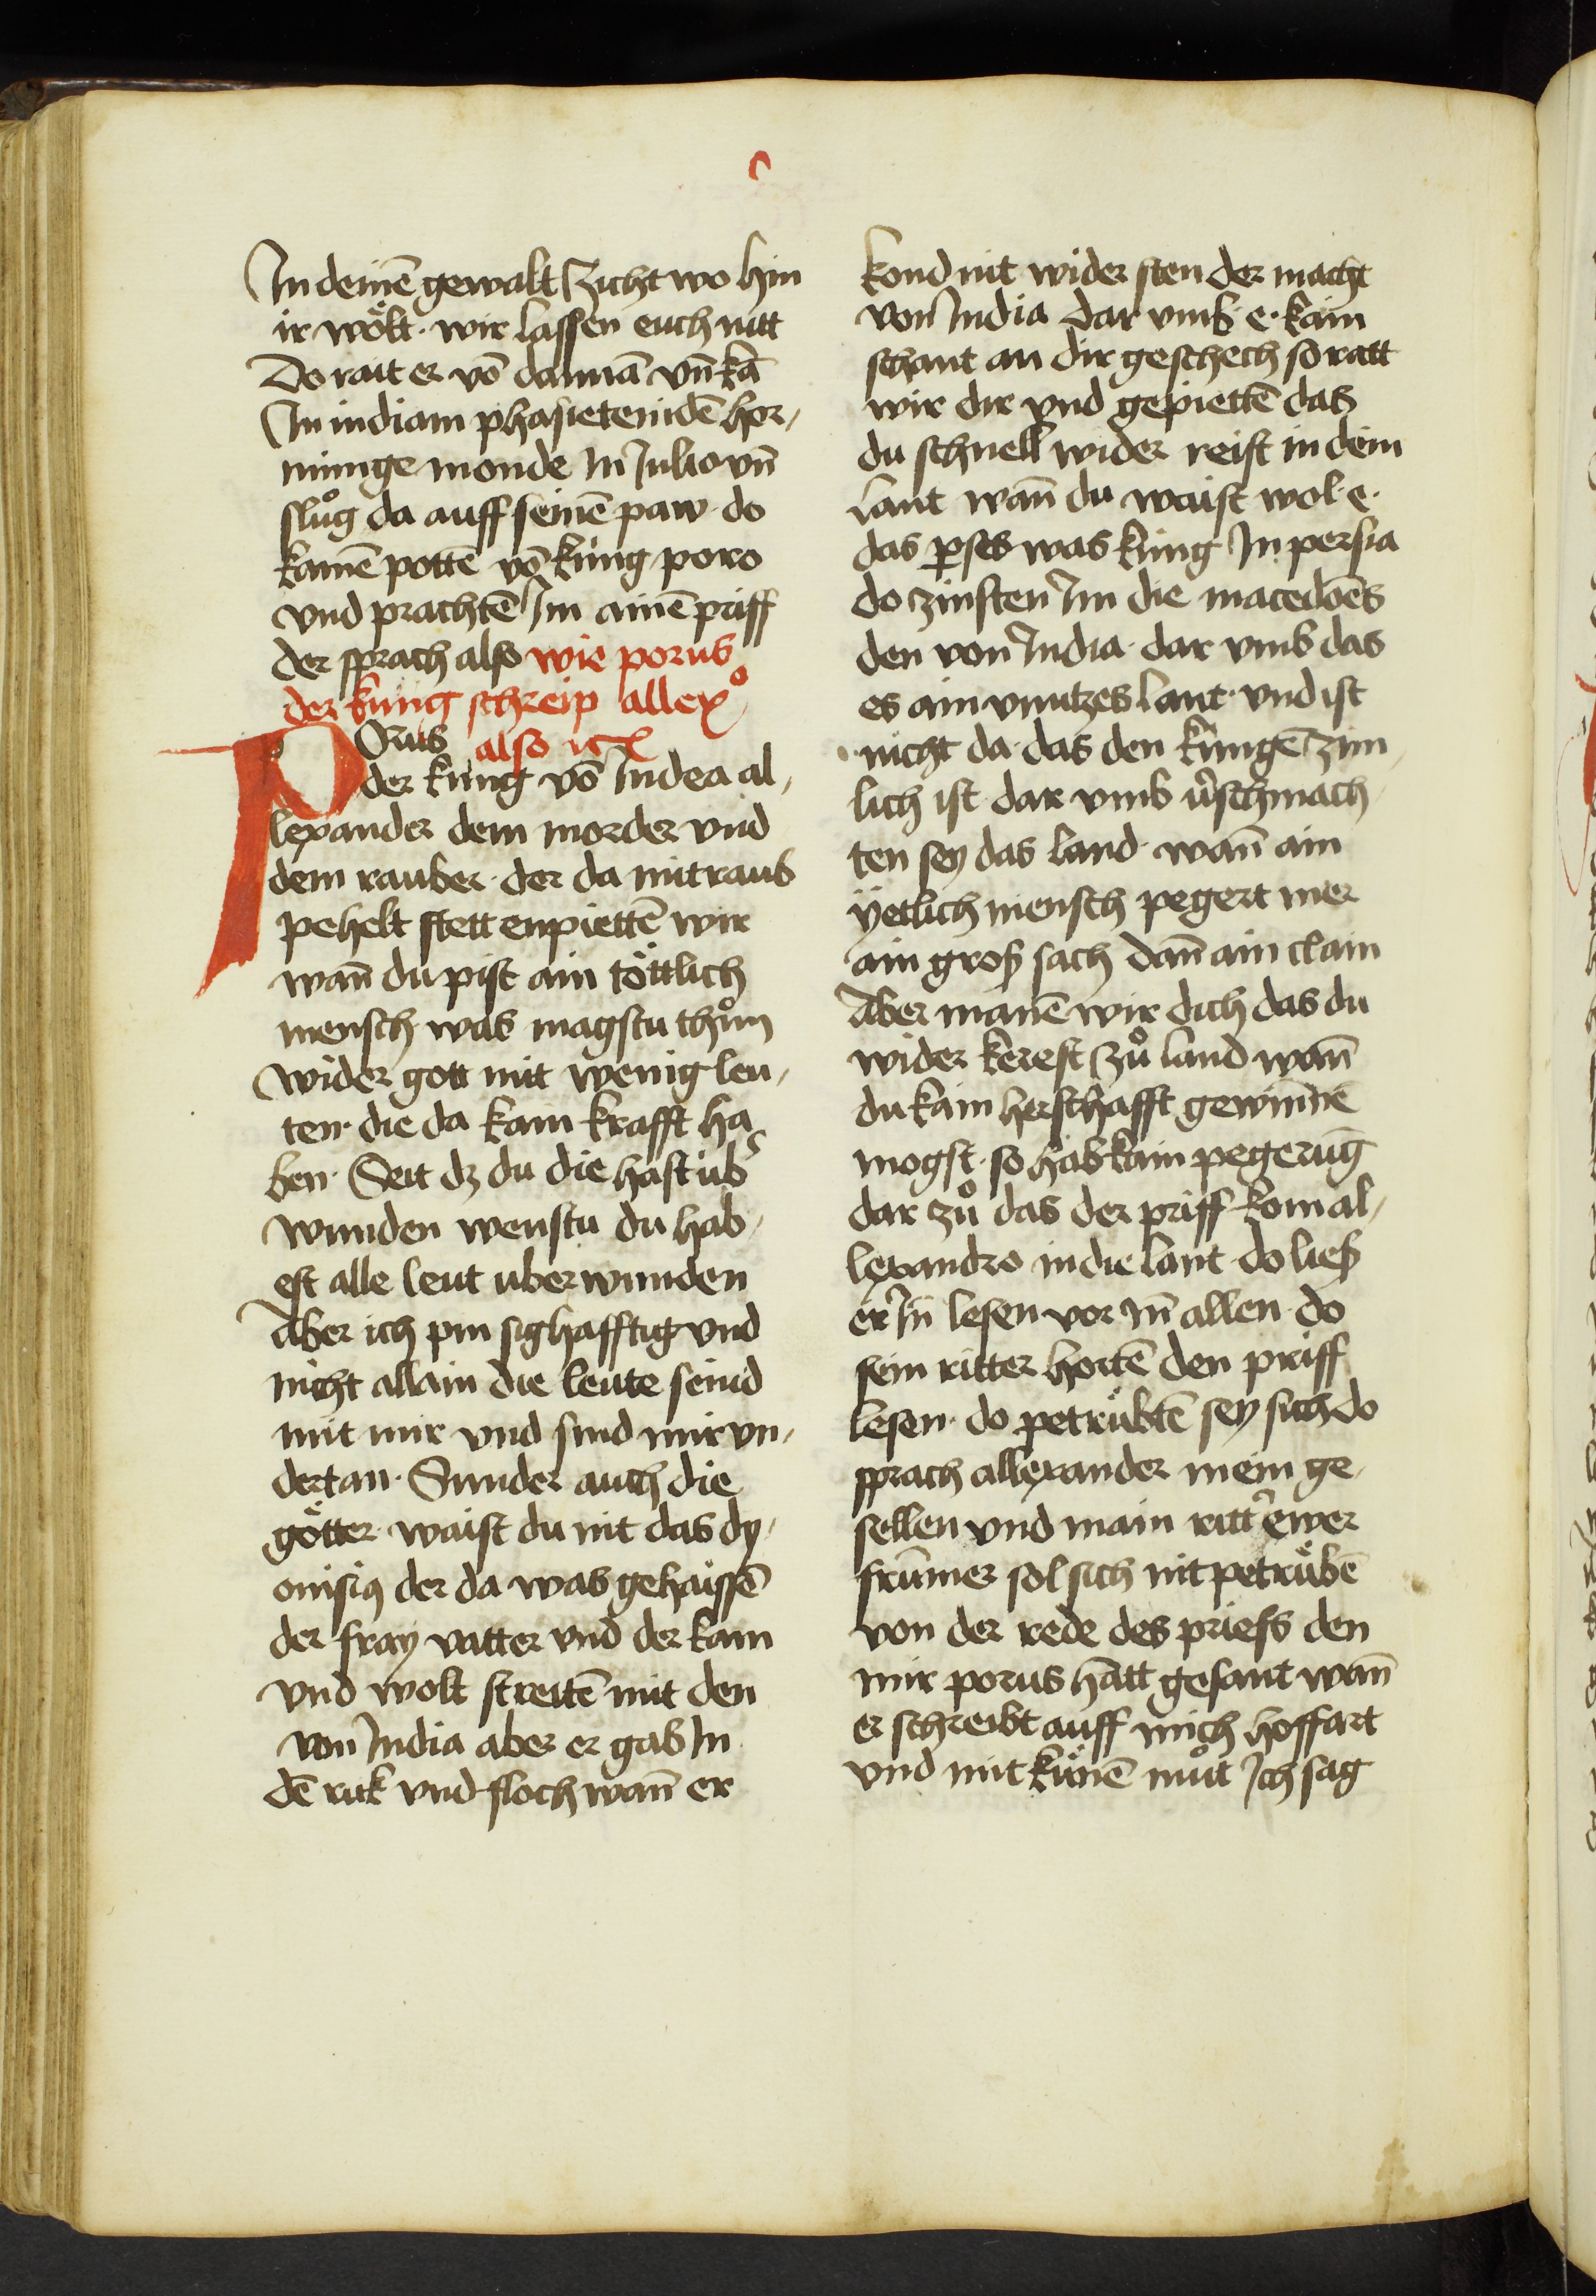 c
In deinē gewalt Zicht wo hin
ir wölt · wir lassen euch nitt
Do rait er vō dannā vn̄ kā
In indiam phasietemdē hor,
nunge monde In Julio vn̄
slůg da auff seinē paw · do
kamē pottē vō kung poro
vnd prachtē Im ainē priff
der sprach also wie porus
der kung schreip allexº
Porus also etc
der kung vō Indea al,
lexander dem morder vnd
dem rauber · der da mit raub
pehelt stett enpiettē wir
wan̄ du pist ain töttlich
mensch was magstu thůn
wider gott mit wenig leu,
ten · die da kain krafft ha
ben · Seit dz du die hast ub̄
wunden wenstu du hab,
est alle leut uber wunden
Aber ich pin sighafftig vnd
nicht allain die leute seind
mit mir vnd sind mir vn,
dertan · Sunder auch die
götter · waist du nit das dy,
onisiꝯ der da was gehaissē
der fray vatter vnd der kam
vnd wolt streitē mit den
von India aber er gab In
dē ruk vnd floch wan̄ er
kond nit wider sten der macht
von India dar vmb · e · kain
schant an dir geschech so ratt
wir dir vnd gepiettē das
du schnell wider reist in dein
lant wan̄ du waist wol · e ·
das ꝑses was kung In persia
do zinsten Im die macedōēs
den von India · dar vmb das
es ain vnutzes lant · vnd ist
nicht da · das den kungē zim
lich ist dar vmb v̄schmach
ten sey das land · wan̄ ain
ÿetlich mensch pegert mer
ain groß sach dan̄ ain clain
Aber manē wir dich das du
wider kerest zů land wan̄
du kain herschafft gewinnē
mogst · so hab kain pegerūg
dar zů das der priff kom al,
lexandro in die lant · do ließ
er In̄ lesen vor In̄ allen · do
sein ritter hortē den priff
lesen · do petrübtē sey sich do
sprach allexander mein ge,
sellen vnd main ritt̄ ewer
frūmer sol sich nit petrübē
von der rede des priefs den
mir porus hatt gesant wan̄
er schreibt auff mich hoffart
vnd mit künē můt Ich sag